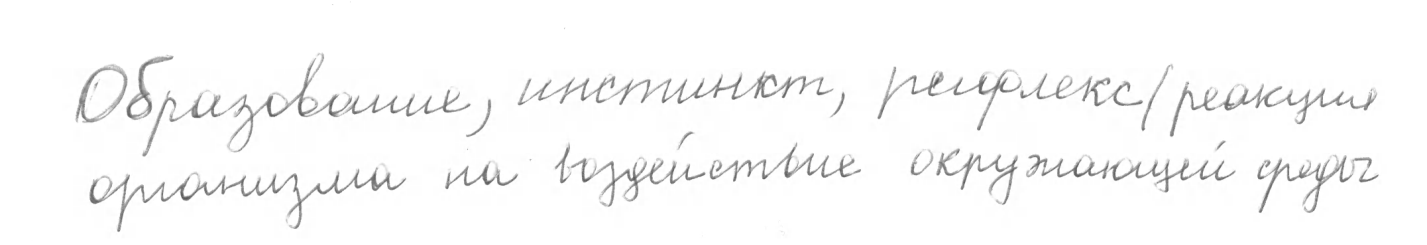 Образование, инстинкт, рефлекс/реакция
организма на воздействие окружающей среды